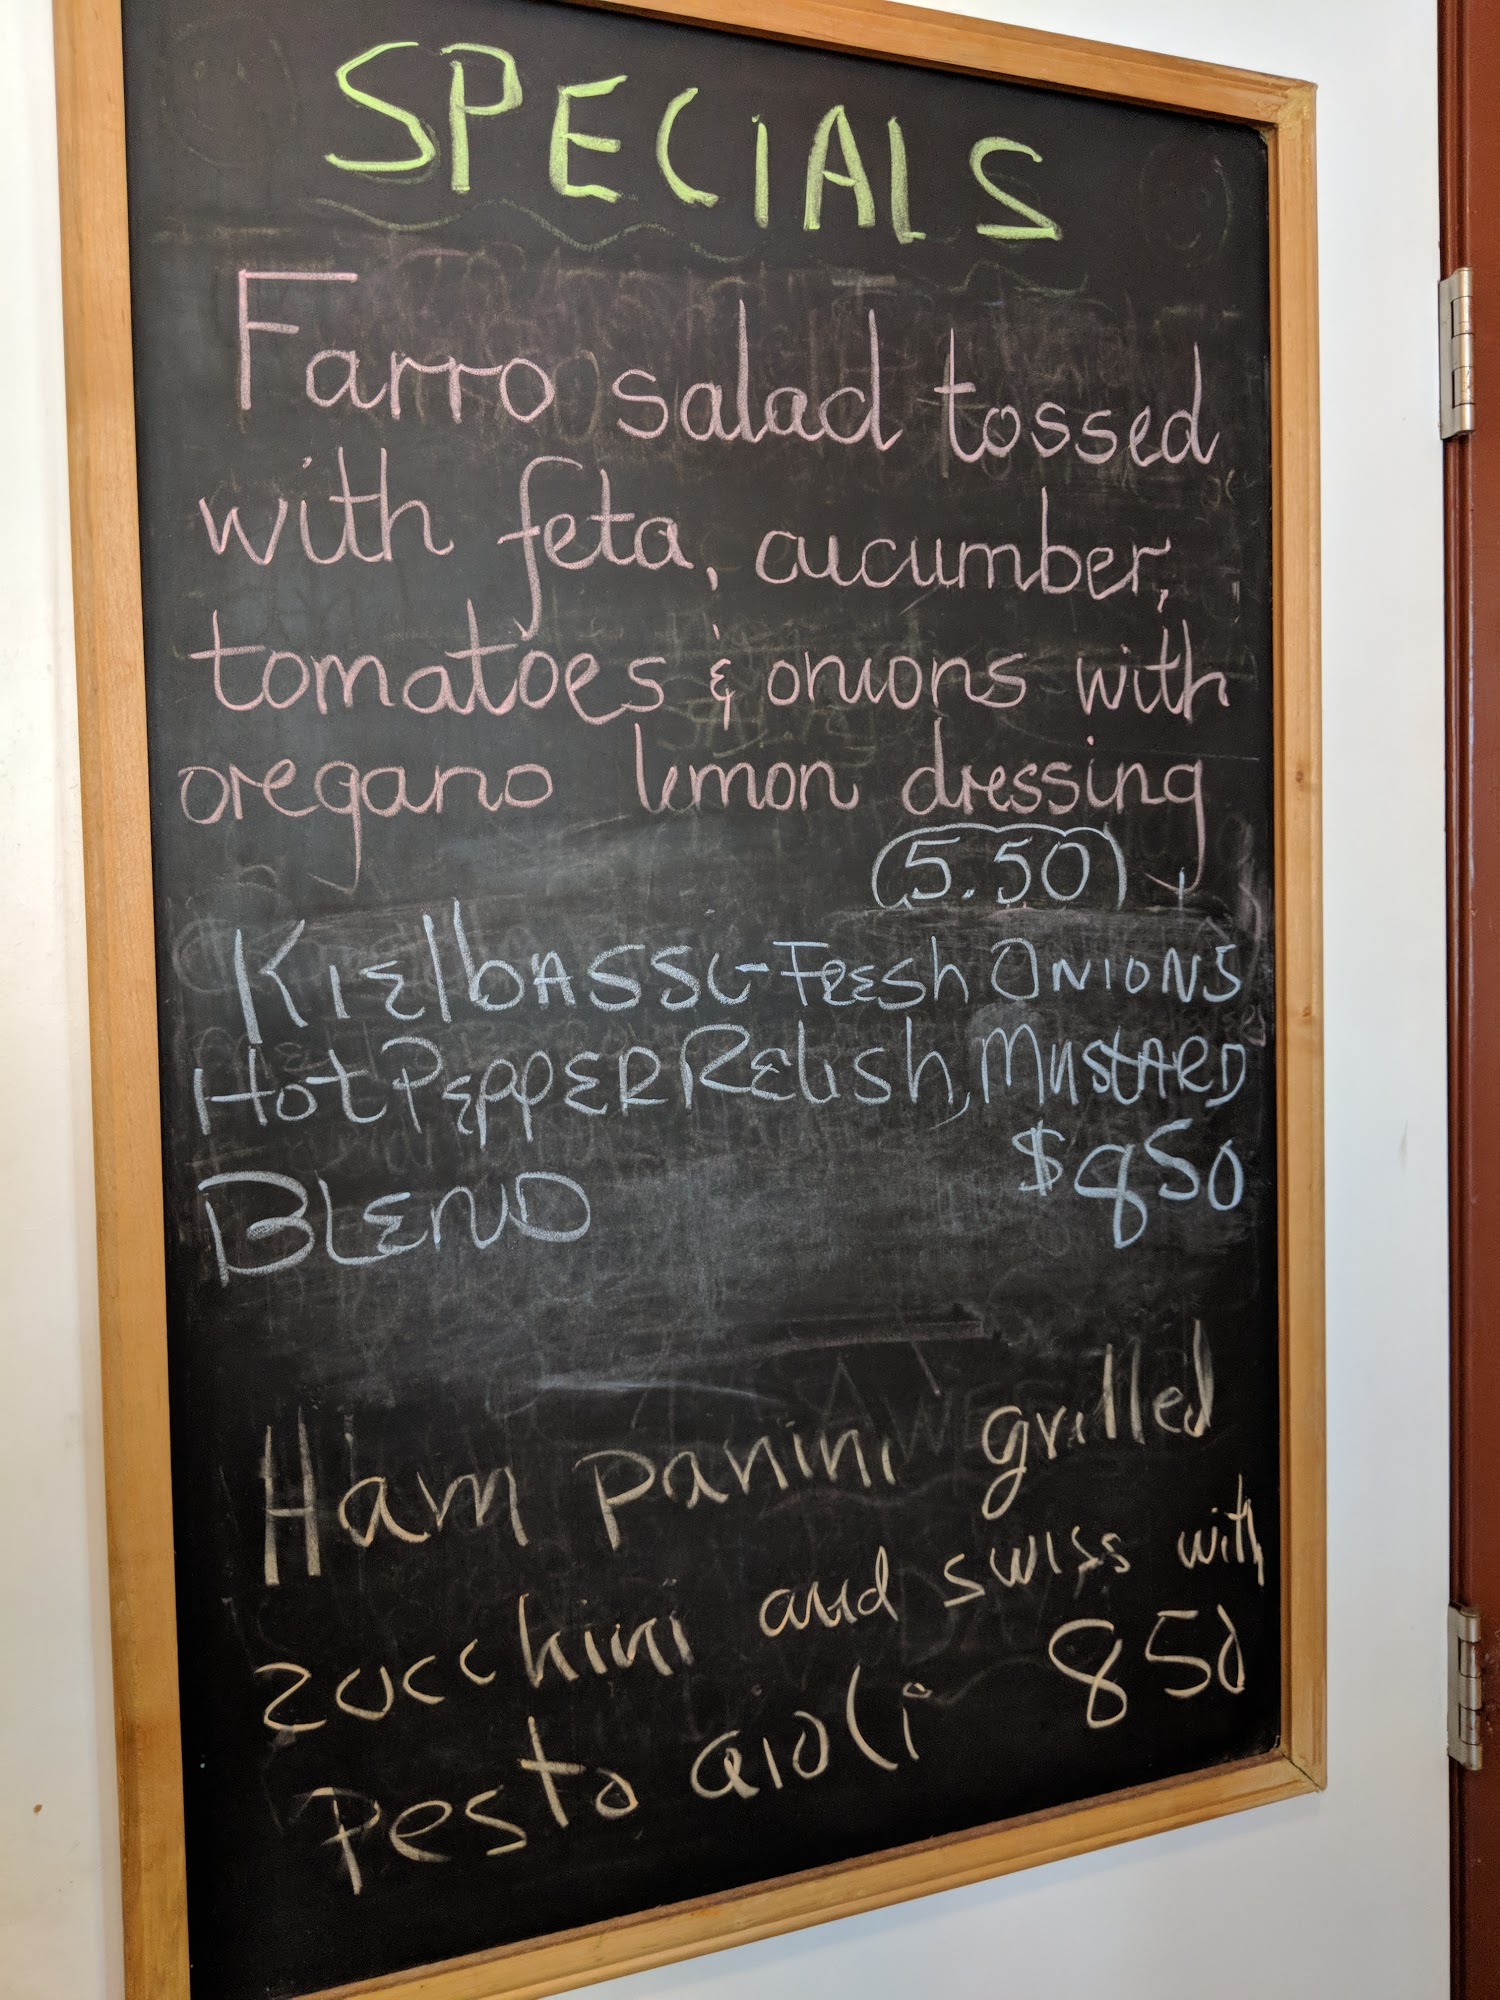 SPECIALS
Farro salad tossed
with feta, cucumber,
tomatoes & onions with
oregano lemon dressing
(5.50)
KIElbASSi-FRESh ONIONS
Hot PEPPER RELish, MUStARD
BLEND $850
Ham panini grilled
zucchini and swiss with
Pesto aioli 850